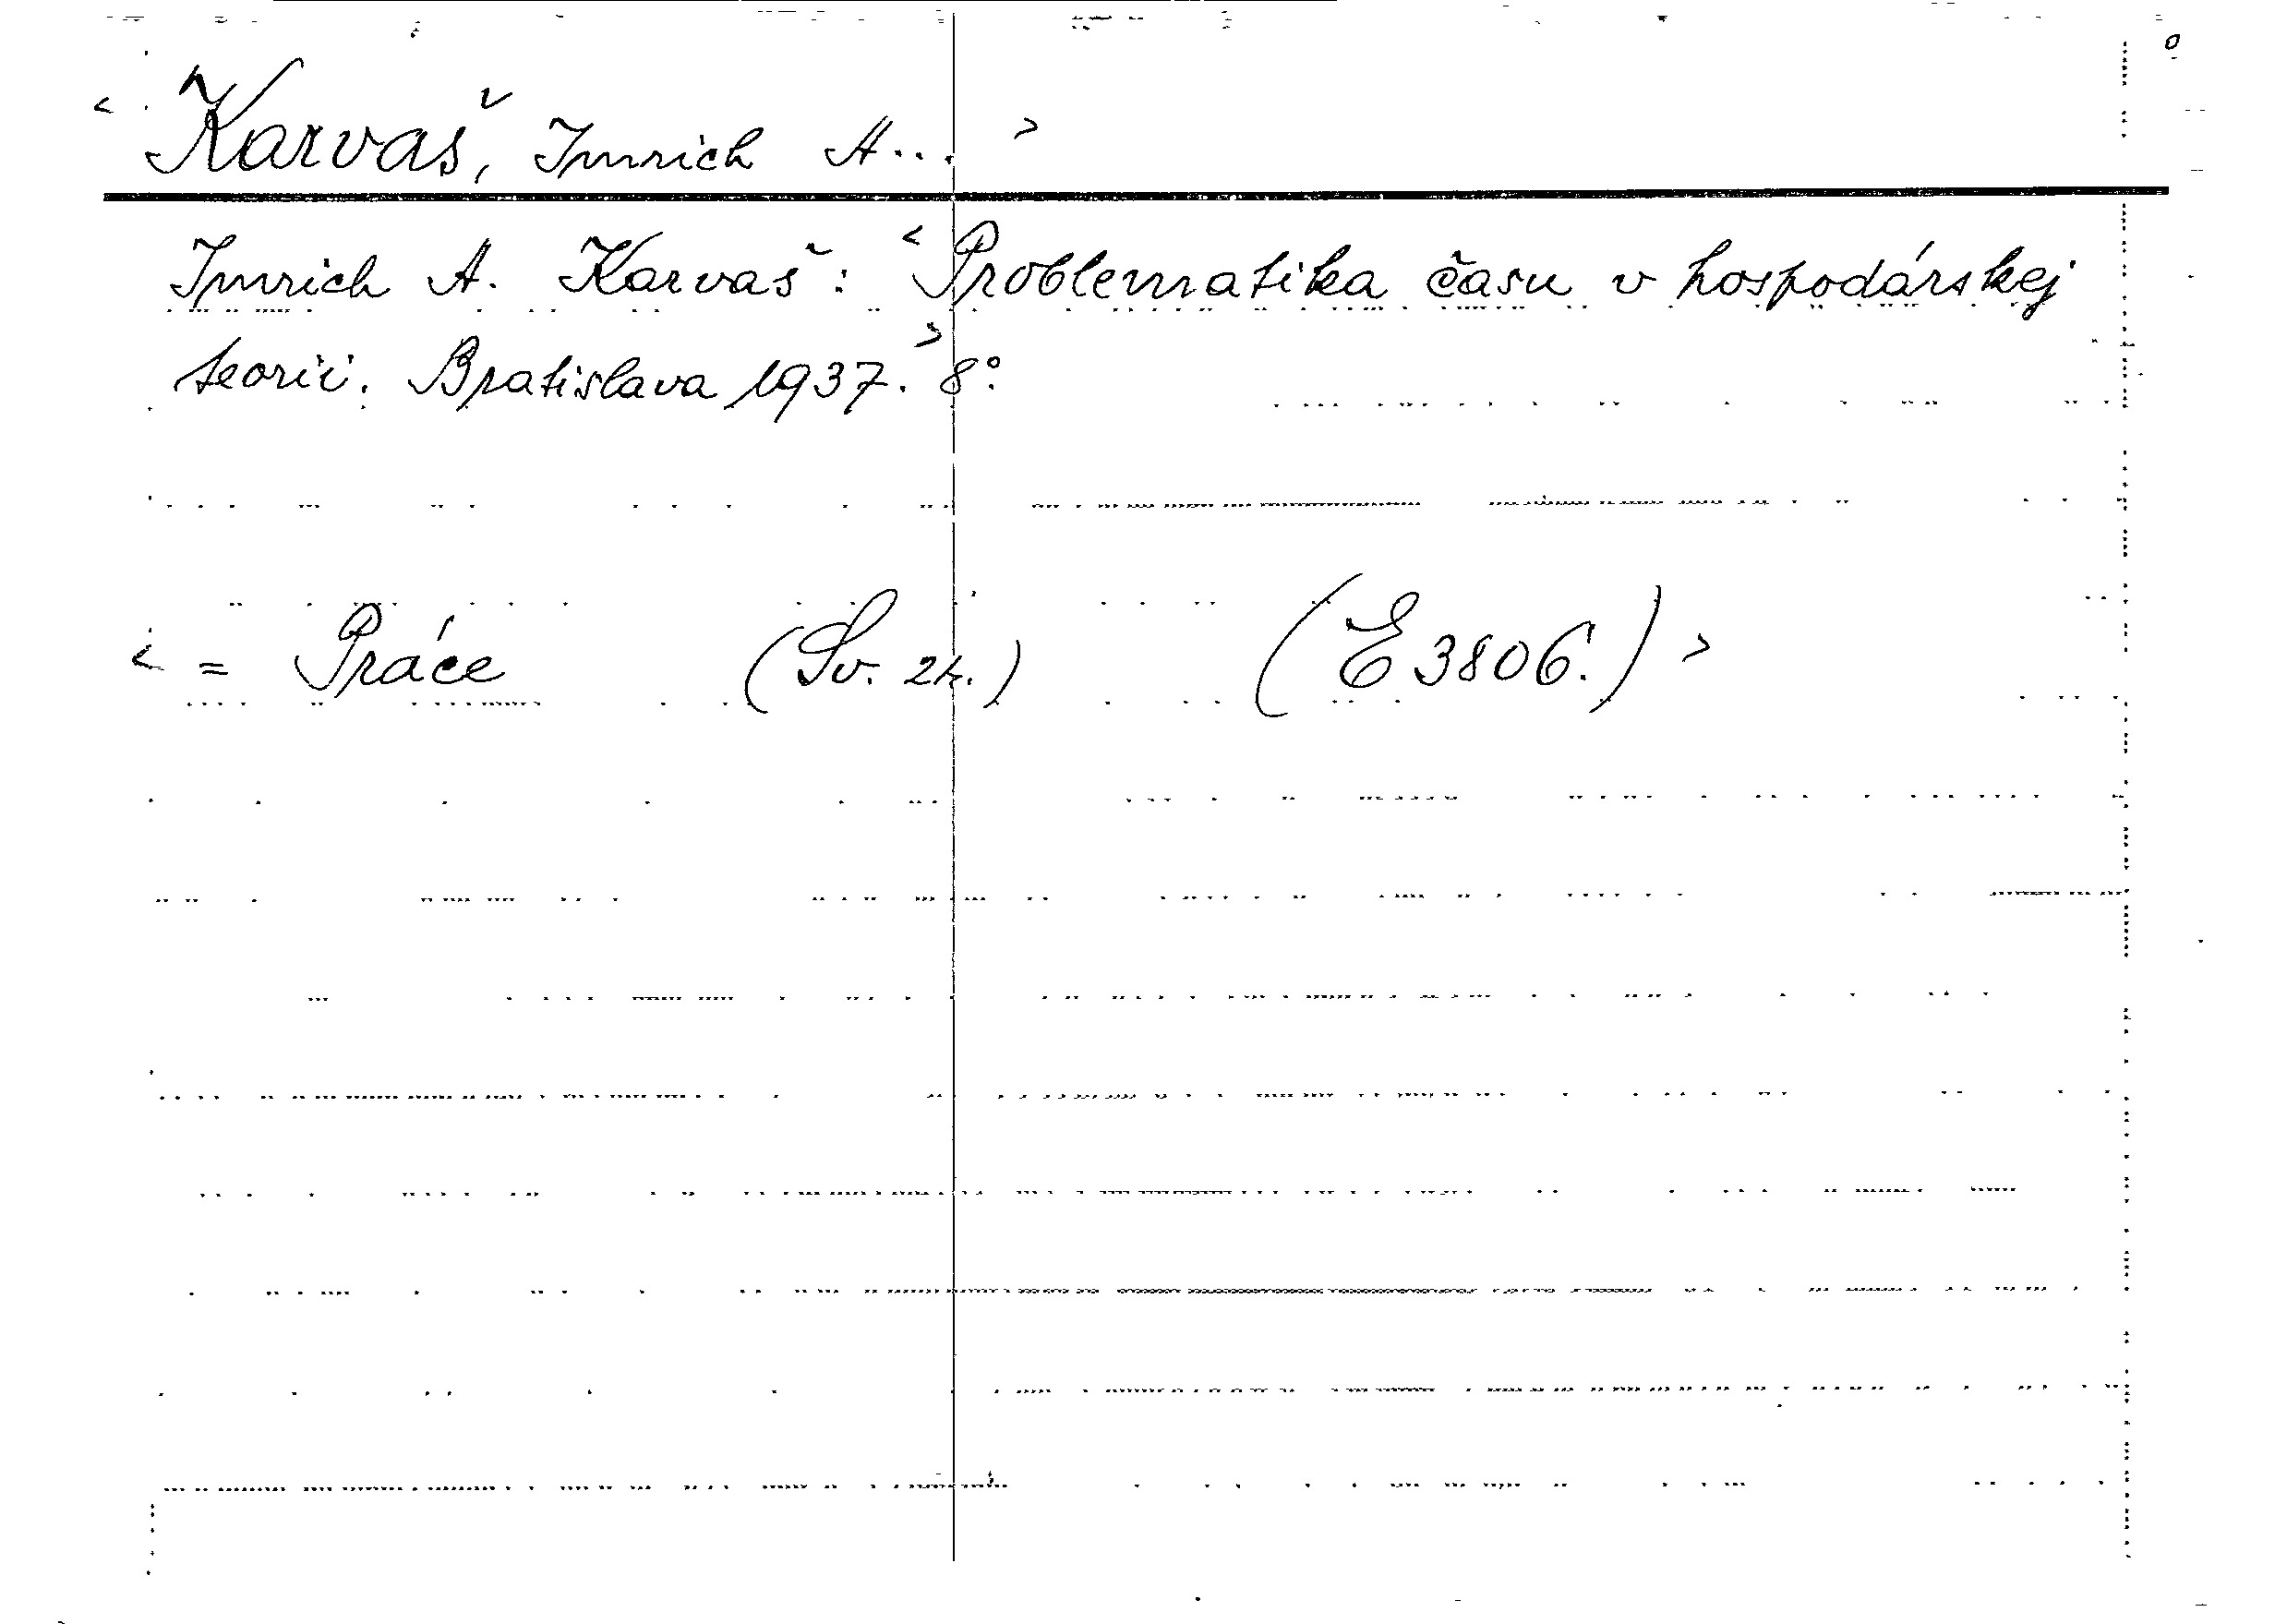 < Karvaš, Imrich A... >
Imrich A. Karvaš: < Problematika času v hospodárskej
teorii. Bratislava 1937. > 8°.
< = Práce (Sv. 24.) (E 3806.) >